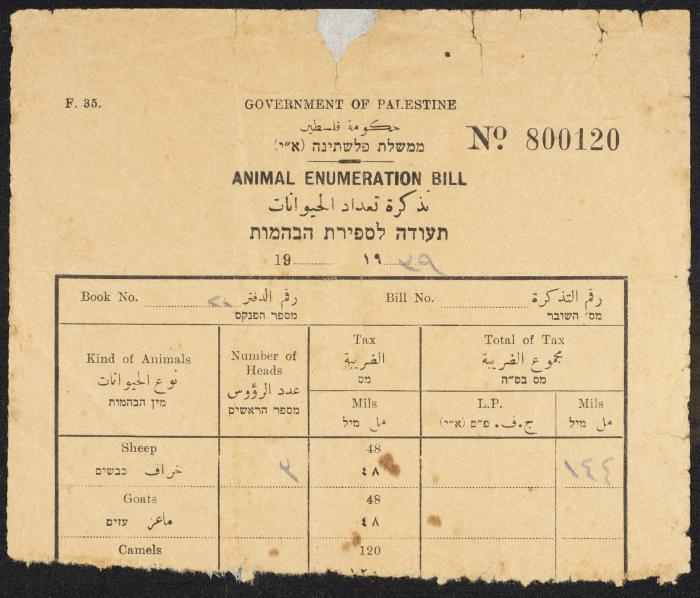 F. 35.
GOVERNMENT OF PALESTINE
حكومة فلسطين
ממשלת פלשתינה (א״י)
Nº 800120
ANIMAL ENUMERATION BILL
تذكرة تعداد الحيوانات
תעודה לספירת הבהמות
19 ١٩ ٣٩
Book No. رقم الدفتر
מספר הפנקס
Bill No. رقم التذكرة
מס׳ השובר
Kind of Animals
نوع الحيوانات
מין הבהמות
Number of Heads
عدد الرؤوس
מספר הראשים
Tax
الضريبة
מס
Mils
مل מיל
Total of Tax
مجموع الضريبة
מס בס״ה
L.P.
ج.ف. פ״פ (א״י)
Mils
مل מיל
Sheep 48
خراف כבשים ٣ ٤٨ ١٤٤
Goats 48
ماعز עזים ٤٨
Camels 120
١٢٠